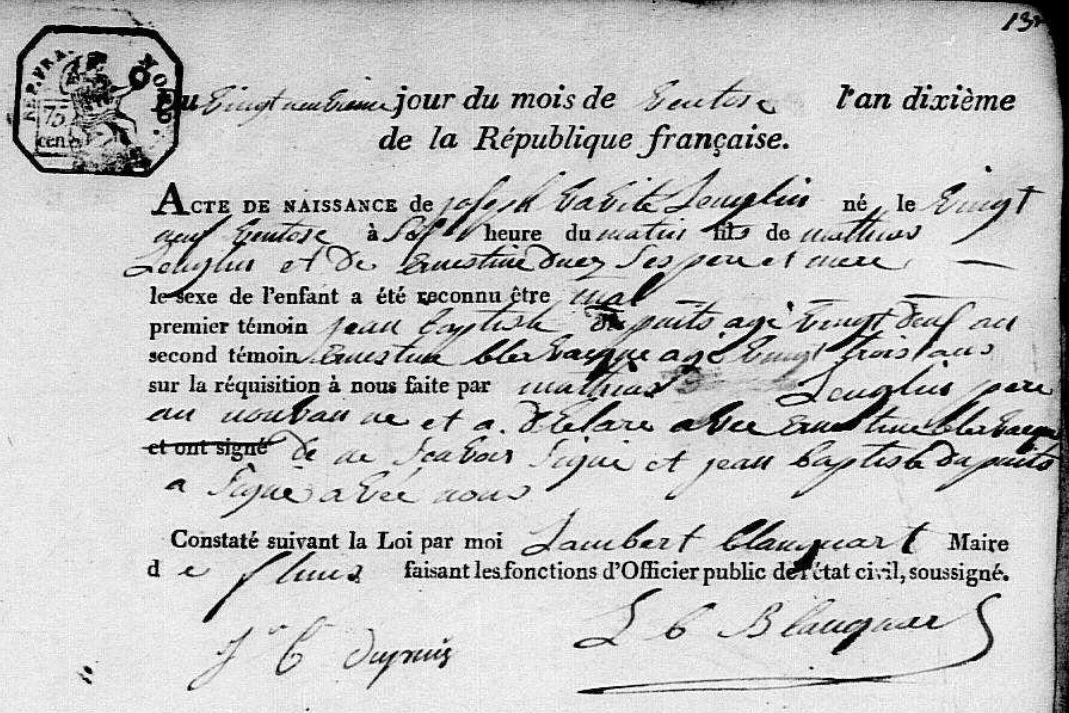 13
REP. FRA.
75
cent.
Du Vingt neuvieme jour du mois de Ventose l'an dixième
de la République française.
ACTE DE NAISSANCE de joseph Lenglin né le Vingt
neuf Ventose à Sept heure du matin fils de mathias
Lenglin et de Ernestine duez Ses pere et mere
le sexe de l'enfant a été reconnu être mal
premier témoin jean baptiste dupuits agé Vingt neuf an
second témoin Ernestine blervacque agé Vingt trois ans
sur la réquisition à nous faite par mathias Lenglin pere
au nouvau ne et a declare avec Ernestine blervacque
et ont signé de ne Scavoir Signé et jean baptiste dupuits
a Signé avec nous
Constaté suivant la Loi par moi Lambert blanquart Maire
de fluns faisant les fonctions d'Officier public de l'état civil, soussigné.
J B dupuis L C Blanquart